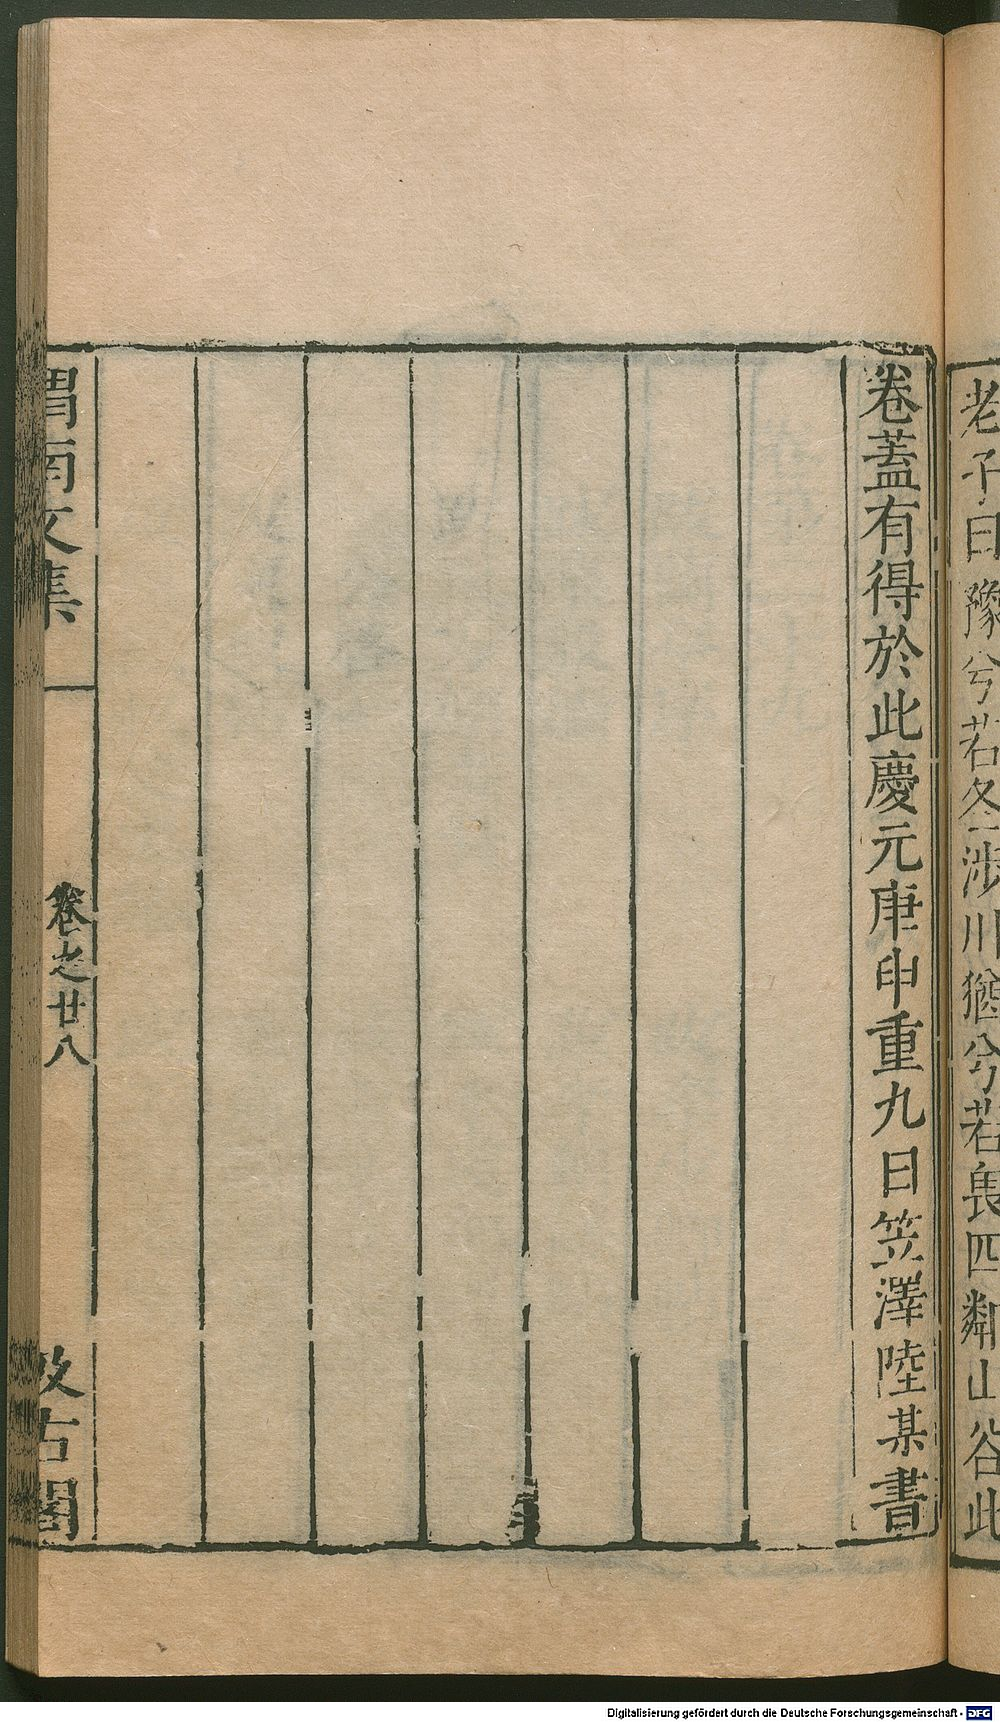 老子曰豫兮若冬涉川猶兮若畏四鄰山谷此
卷蓋有得於此慶元庚申重九日笠澤陸某書
渭南文集
卷之廿八
汲古閣
Digitalisierung gefördert durch die Deutsche Forschungsgemeinschaft - DFG